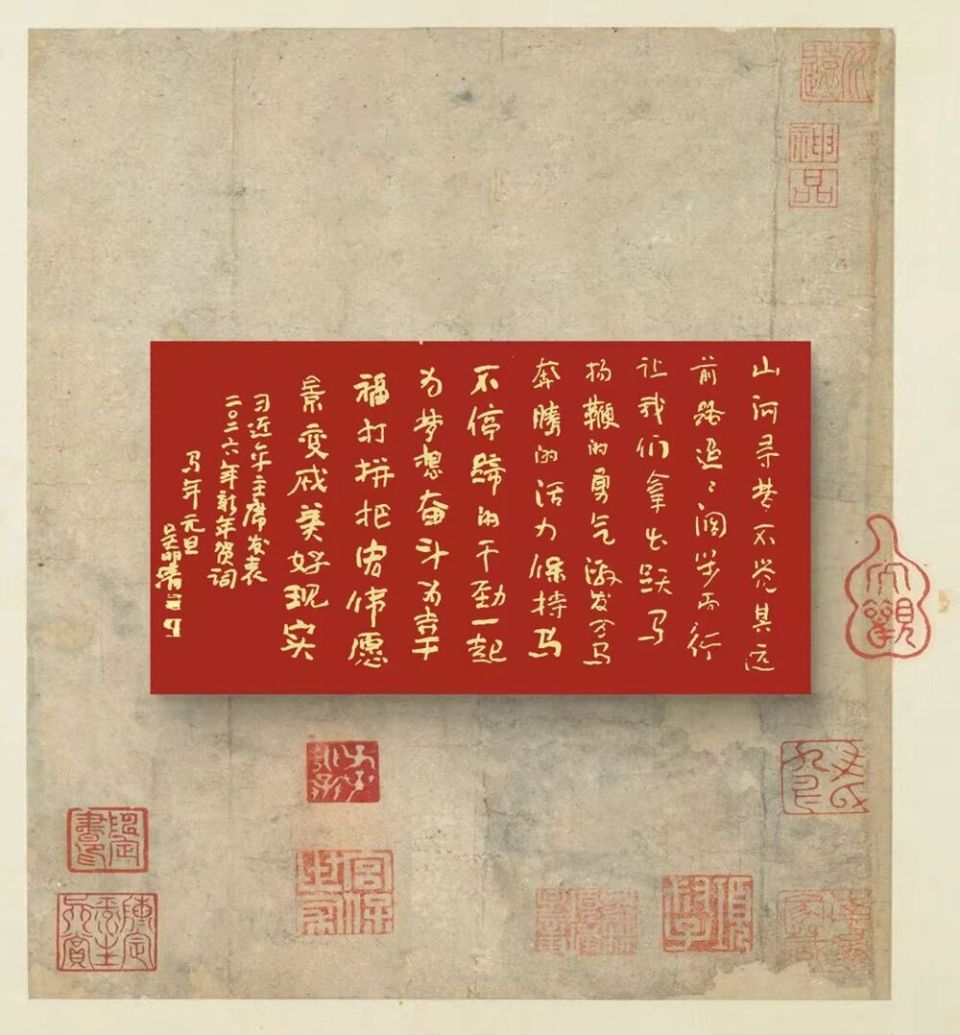 神品
山河寻梦不觉其远
前路迢〻阔步而行
让我们拿出跃马
扬鞭的勇气激发万马
奔腾的活力保持马
不停蹄的干劲一起
为梦想奋斗为幸
福打拼把宏伟愿
景变成美好现实
习近平主席发表
二〇二六年新年贺词
马年元旦
宫保世家